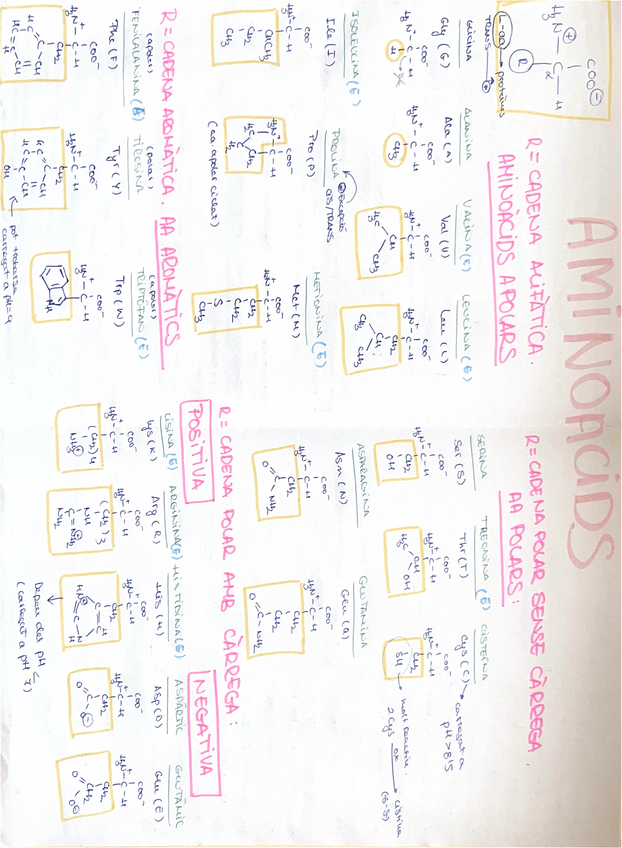 AMINOÀCIDS
COO⊖
H₃N⊕ — C — H
α
R
L-aa
proteïnes
TRANS
R = CADENA ALIFÀTICA.
AMINOÀCIDS APOLARS
GLICINA
Gly (G)
COO⁻
H₃N⁺–C–H
H
ALANINA
Ala (A)
COO⁻
H₃N⁺–C–H
CH₃
VALINA (E)
Val (V)
COO⁻
H₃N⁺–C–H
CH
H₃C CH₃
LEUCINA (E)
Leu (L)
COO⁻
H₃N⁺–C–H
CH₂
CH
CH₃ CH₃
ISOLEUCINA (E)
Ile (I)
COO⁻
H₃N⁺–C–H
CHCH₃
CH₂
CH₃
PROLINA
Pro (P)
Excepció
CIS/TRANS
COO⁻
H₂N⁺–C–H
H₂C CH₂
CH₂
(aa apolar ciclat)
METIONINA (E)
Met (M)
COO⁻
H₃N⁺–C–H
CH₂
CH₂
S
CH₃
R = CADENA AROMÀTICA. AA AROMÀTICS
(apolar)
FENILALANINA (E)
Phe (F)
COO⁻
H₃N⁺–C–H
CH₂
(polar)
TIROSINA
Tyr (Y)
COO⁻
H₃N⁺–C–H
CH₂
OH
pot trobar-se
carregat a pH=4
(apolar)
TRIPTÒFAN (E)
Trp (W)
COO⁻
H₃N⁺–C–H
NH
R = CADENA POLAR SENSE CÀRREGA.
AA POLARS:
SERINA
Ser (S)
COO⁻
H₃N⁺–C–H
CH₂
OH
TREONINA (E)
Thr (T)
COO⁻
H₃N⁺–C–H
CH
H₃C OH
CISTEÏNA
Cys (C) → carregat a
pH > 8'5
COO⁻
H₃N⁺–C–H
CH₂
SH → molt reactiu.
2 Cys ox → cistina
(S-S)
ASPARAGINA
Asn (N)
COO⁻
H₃N⁺–C–H
CH₂
C
O NH₂
GLUTAMINA
Gln (Q)
COO⁻
H₃N⁺–C–H
CH₂
CH₂
C
O NH₂
R = CADENA POLAR AMB CÀRREGA:
POSITIVA
NEGATIVA
LISINA (E)
Lys (K)
COO⁻
H₃N⁺–C–H
(CH₂)4
NH₃⊕
ARGININA (E)
Arg (R)
COO⁻
H₃N⁺–C–H
(CH₂)3
NH
C=NH₂⊕
NH₂
HISTIDINA (E)
His (H)
COO⁻
H₃N⁺–C–H
CH₂
Depen del pH
(carregat a pH < 7)
ASPÀRTIC
Asp (D)
COO⁻
H₃N⁺–C–H
CH₂
C
O O⊖
GLUTÀMIC
Glu (E)
COO⁻
H₃N⁺–C–H
CH₂
CH₂
C
O O⊖